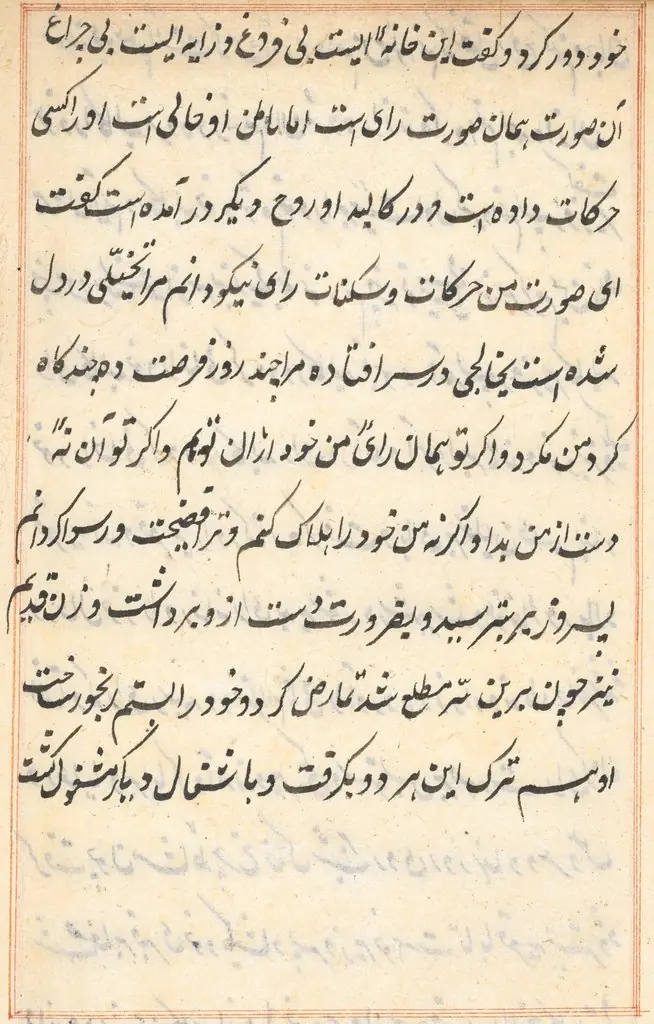 خود دور کرد و کفت این خانهٔ الیست بی فروغ و زاویه الیست بی چراغ
آن صورت همان صورت رای است اما باطن او خالی است او را کسی
حرکات داده است و در کالبد او روح دیکر در آمده است کفت
ای صورت من حرکات و سکنات رای نیکو دانم مرا تخیّلی در دل
شده است و خالجی در سر افتاده مرا چند روز فرصت ده چندکاه
کرد من مکرد و اکر تو همان رایٔ من خود ازان توام و اکر تو آن نهٔ
دست از من بدار و اکر نه من خود را هلاک کنم و ترا فضیحت و رسوا کردانم
پسر وزیر بترسید و بضرورت دست ازو برداشت و زن قدیم
نیز چون برین سّر مطلع شد تمارض کرد و خود را بستم رنجور ساخت
او هم ترک این هر دو بکرفت و باشتغال دیکر مشغول کشت